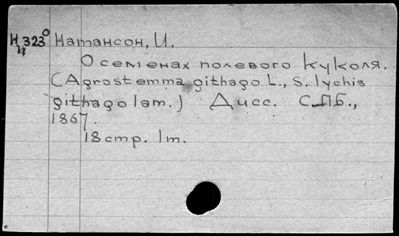 Н323° Натансон, И.
И
О семенах полевого куколя.
(Agrostemma githago L., S. lychis
githago lam.) Дисс. С.П.Б.,
1867.
18 стр. 1 т.